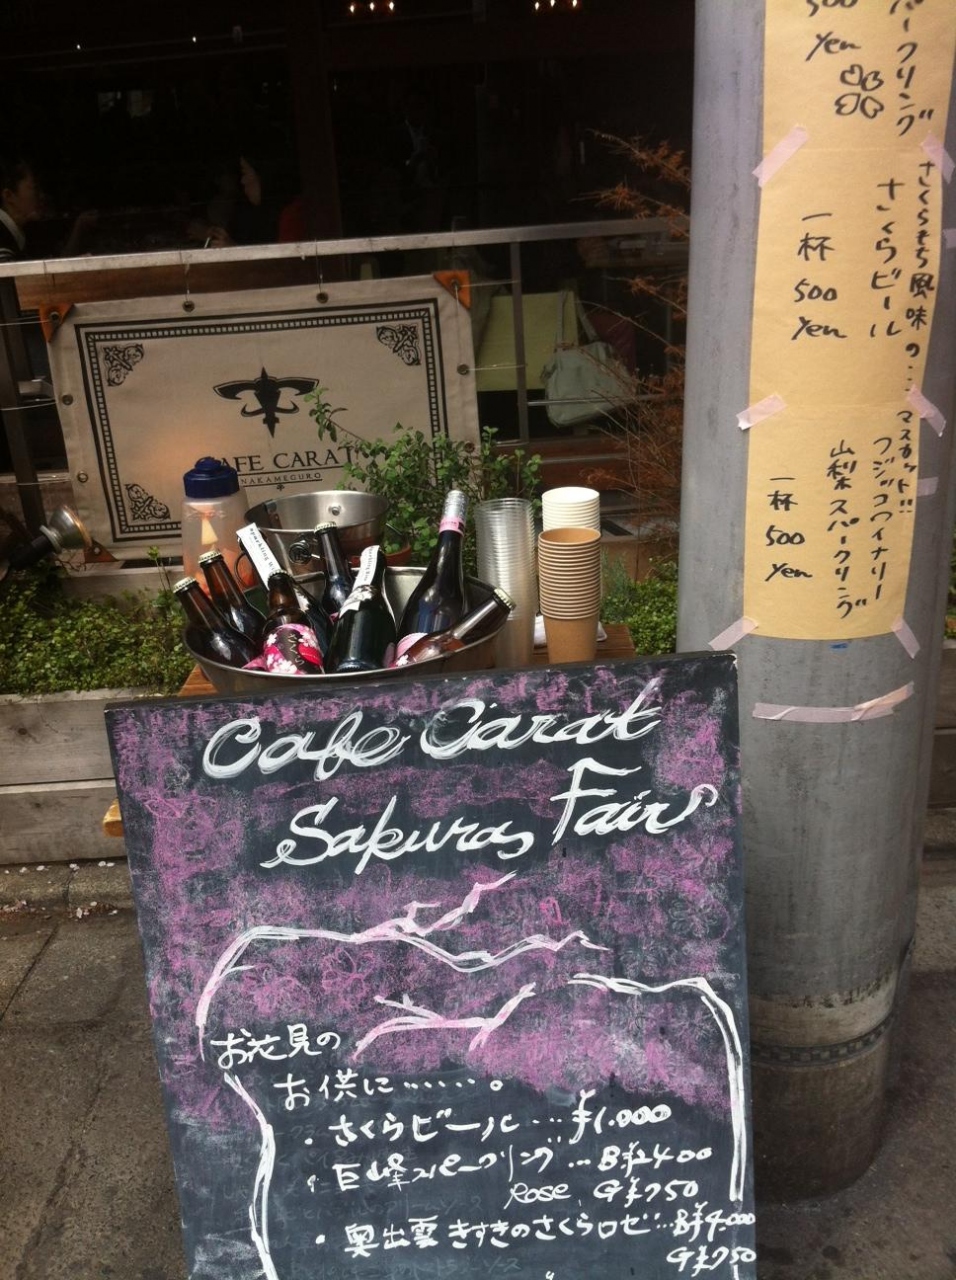 パークリング
500
yen
さくらもち風味の...
さくらビール
一杯
500
yen
マスカット!!
フジッコワイナリー
山梨スパークリング
一杯
500
yen
CAFE CARAT
NAKAMEGURO
Cafe Carat
Sakura Fair
お花見の
お供に.......。
・さくらビール...¥1.000
・巨峰スパークリング...B¥2400
Rose G¥750
・奥出雲きすきのさくらロゼ...B¥4.000
G¥750